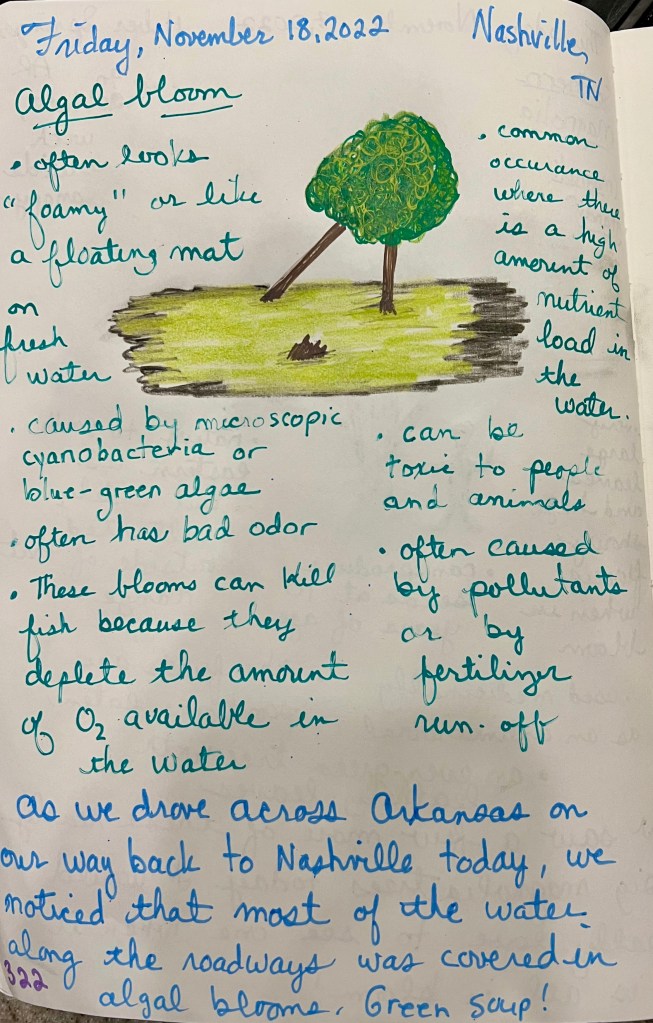 Friday, November 18, 2022
Nashville,
TN
Algal bloom
• often looks
"foamy" or like
a floating mat
on
fresh
water
• common
occurance
where there
is a high
amount of
nutrient
load in
the
water.
• caused by microscopic
cyanobacteria or
blue-green algae
• often has bad odor
• These blooms can kill
fish because they
deplete the amount
of O₂ available in
the water
• can be
toxic to people
and animals
• often caused
by pollutants
or by
fertilizer
run-off
As we drove across Arkansas on
our way back to Nashville today, we
noticed that most of the water
along the roadways was covered in
algal blooms. Green Soup!
322